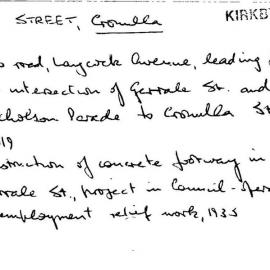 STREET, Cronulla
KIRKB
road, Laycock Avenue, leading
intersection of Gerrale St. and
cholson Parade to Cronulla St
19
struction of concrete footway in
rrale St., project in Council-
employment relief work, 1935